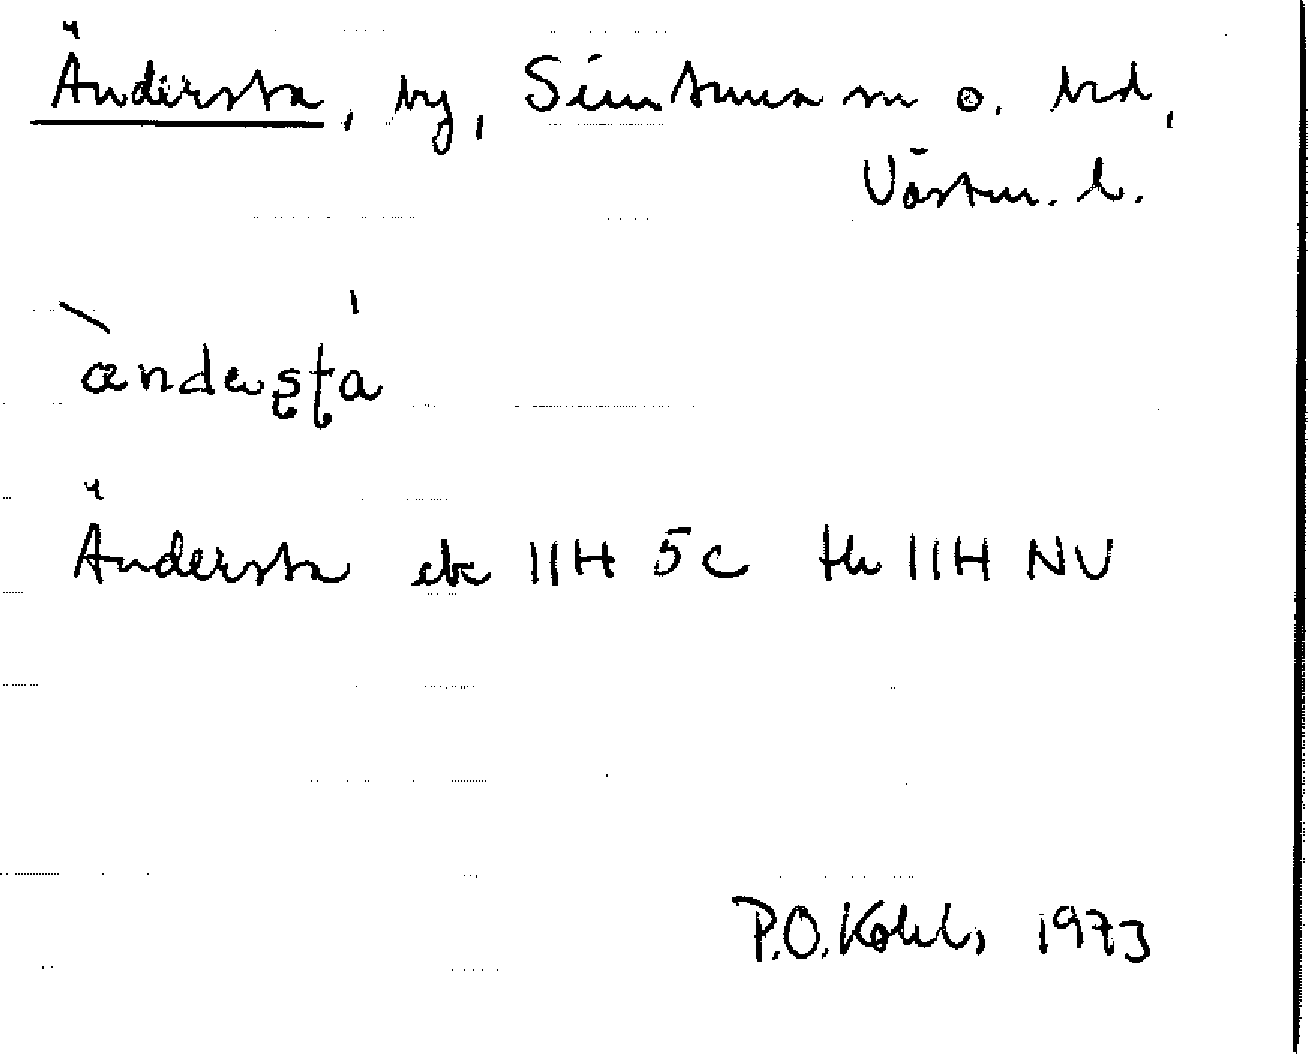 Ändersta, by, Simtuna sn o. hd,
Västm. l.
ändersta
Ändersta ek 11H 5c tk 11H NV
P.O. 1973